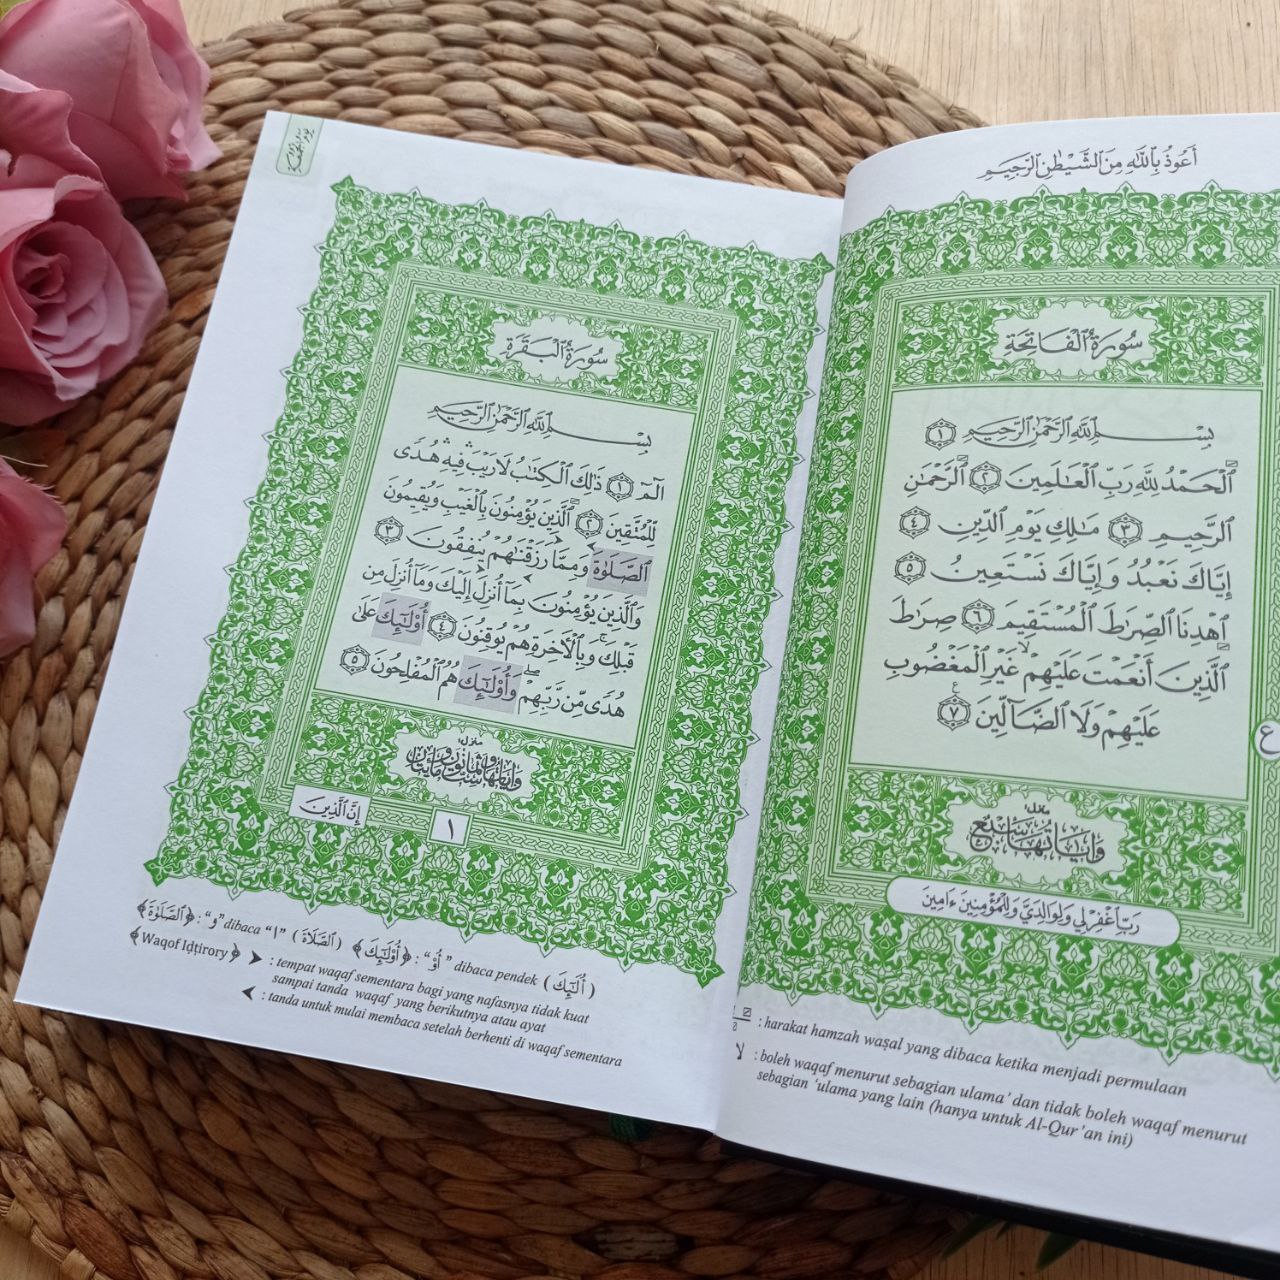 أَعُوذُ بِاللَّهِ مِنَ الشَّيْطٰنِ الرَّجِيمِ
سُورَةُ ٱلْفَاتِحَةِ
بِسْمِ ٱللَّهِ ٱلرَّحْمَٰنِ ٱلرَّحِيمِ ١
ٱلْحَمْدُ لِلَّهِ رَبِّ ٱلْعَٰلَمِينَ ٢ ٱلرَّحْمَٰنِ
ٱلرَّحِيمِ ٣ مَٰلِكِ يَوْمِ ٱلدِّينِ ٤
إِيَّاكَ نَعْبُدُ وَإِيَّاكَ نَسْتَعِينُ ٥
ٱهْدِنَا ٱلصِّرَٰطَ ٱلْمُسْتَقِيمَ ٦ صِرَٰطَ
ٱلَّذِينَ أَنْعَمْتَ عَلَيْهِمْ غَيْرِ ٱلْمَغْضُوبِ
عَلَيْهِمْ وَلَا ٱلضَّآلِّينَ ٧
ع
وَاٰيَاتُهَا سَبْعٌ
رَبِّ اغْفِرْ لِي وَلِوَالِدَيَّ وَلِلْمُؤْمِنِينَ ءَامِينَ
: harakat hamzah waṣal yang dibaca ketika menjadi permulaan
لا : boleh waqaf menurut sebagian ulama' dan tidak boleh waqaf menurut
sebagian 'ulama yang lain (hanya untuk Al-Qur'an ini)
يوم الجمعة
سُورَةُ ٱلْبَقَرَةِ
بِسْمِ ٱللَّهِ ٱلرَّحْمَٰنِ ٱلرَّحِيمِ
الٓمٓ ١ ذَٰلِكَ ٱلْكِتَٰبُ لَا رَيْبَ فِيهِ هُدًى
لِّلْمُتَّقِينَ ٢ ٱلَّذِينَ يُؤْمِنُونَ بِٱلْغَيْبِ وَيُقِيمُونَ
ٱلصَّلَوٰةَ وَمِمَّا رَزَقْنَٰهُمْ يُنفِقُونَ ٣
وَٱلَّذِينَ يُؤْمِنُونَ بِمَآ أُنزِلَ إِلَيْكَ وَمَآ أُنزِلَ مِن
قَبْلِكَ وَبِٱلْأَخِرَةِ هُمْ يُوقِنُونَ ٤ أُوْلَٰٓئِكَ عَلَىٰ
هُدًى مِّن رَّبِّهِمْ وَأُوْلَٰٓئِكَ هُمُ ٱلْمُفْلِحُونَ ٥
إِنَّ ٱلَّذِينَ
١
﴿ٱلصَّلَوٰةَ﴾ : "و" dibaca "ا" (ٱلصَّلَاةَ) ﴿أُوْلَٰٓئِكَ﴾ : "أُوْ" dibaca pendek (أُلَٰٓئِكَ)
﴿Waqof Iḍṭirory﴾ : tempat waqaf sementara bagi yang nafasnya tidak kuat
sampai tanda waqaf yang berikutnya atau ayat
: tanda untuk mulai membaca setelah berhenti di waqaf sementara